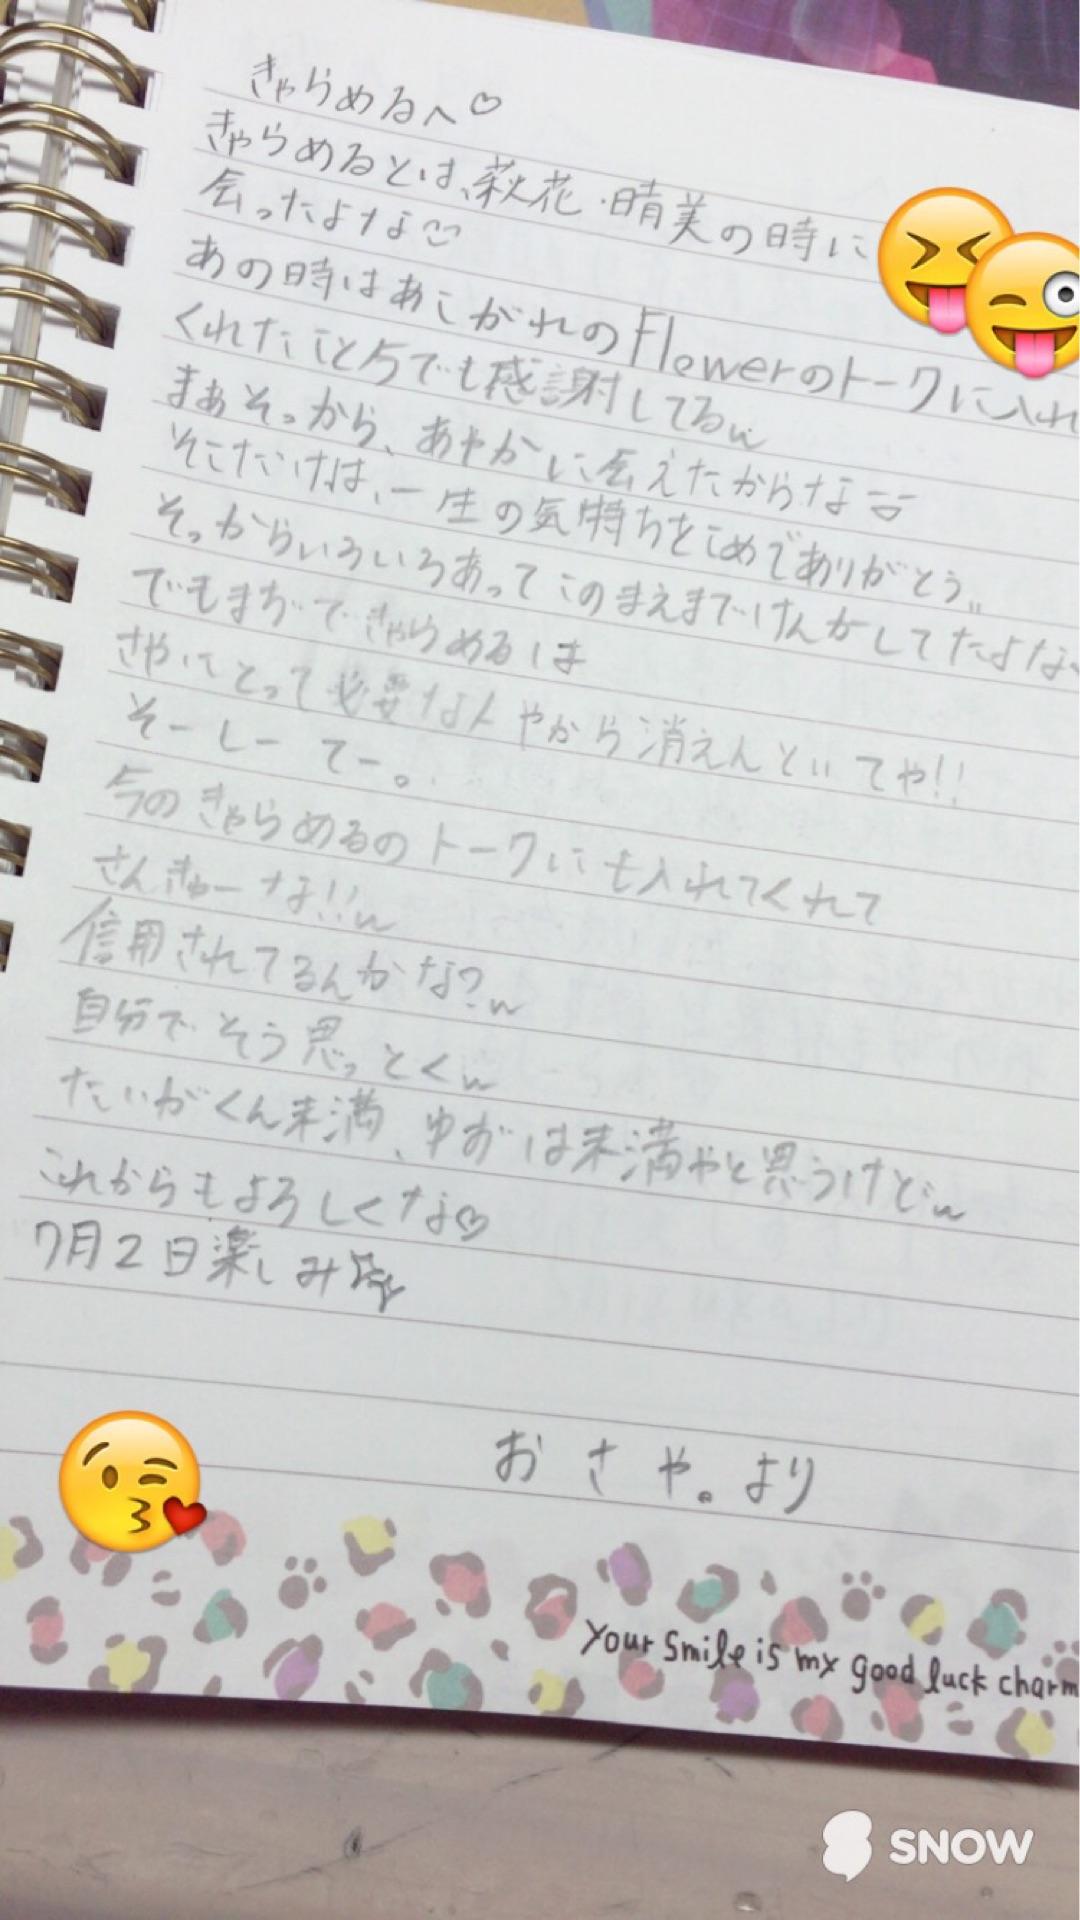 きゃらめるへ♡
きゃらめるとは、萩花・晴美の時に
会ったよな
あの時はあこがれのFlowerのトークに入れ
くれたこと今でも感謝してるw
まぁそっから、あやかに会えたからな
そこだけは、一生の気持ちをこめでありがとう。
そっからいろいろあってこのまえまでけんかしてたよな
でもまぢできゃらめるは
さやにとって必要な人やから消えんといてや!!
そーしーてー。
今のきゃらめるのトークにも入れてくれて
さんきゅーな!!w
信用されてるんかな?w
自分でそう思っとくw
たいがくん未満、ゆずは未満やと思うけどw
これからもよろしくな♡
7月2日楽しみ☆
おさや。より
Your smile is my good luck charm
SNOW